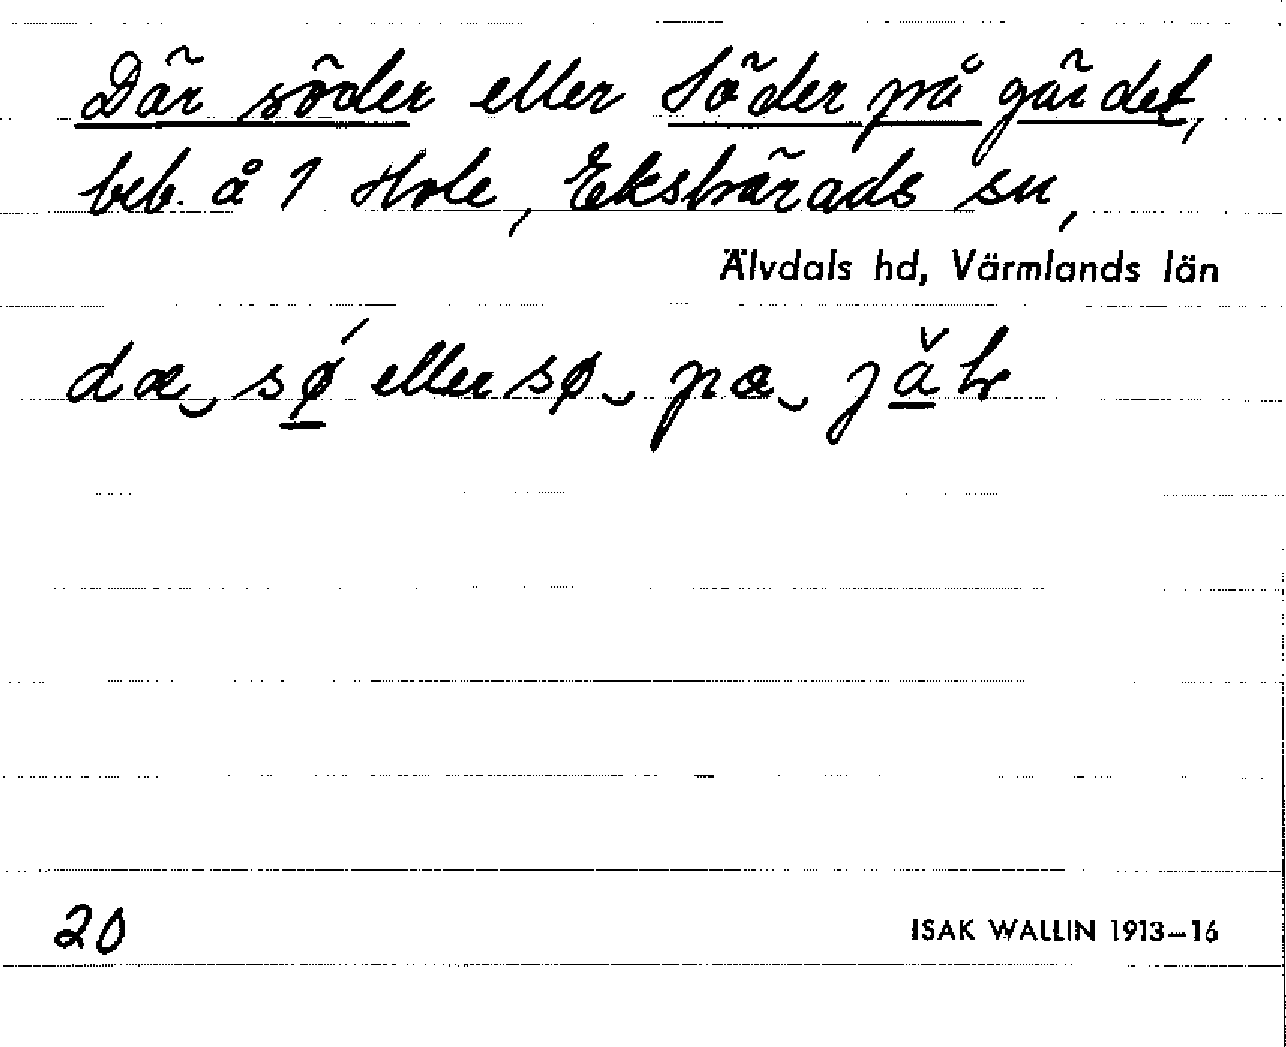 Där söder eller Söder på gärdet,
beb. å 1 Hole, Ekshärads sn,
Älvdals hd, Värmlands län
dæ‿ sǿ eller sø‿ pæ‿ jǎ
20
ISAK WALLIN 1913–16